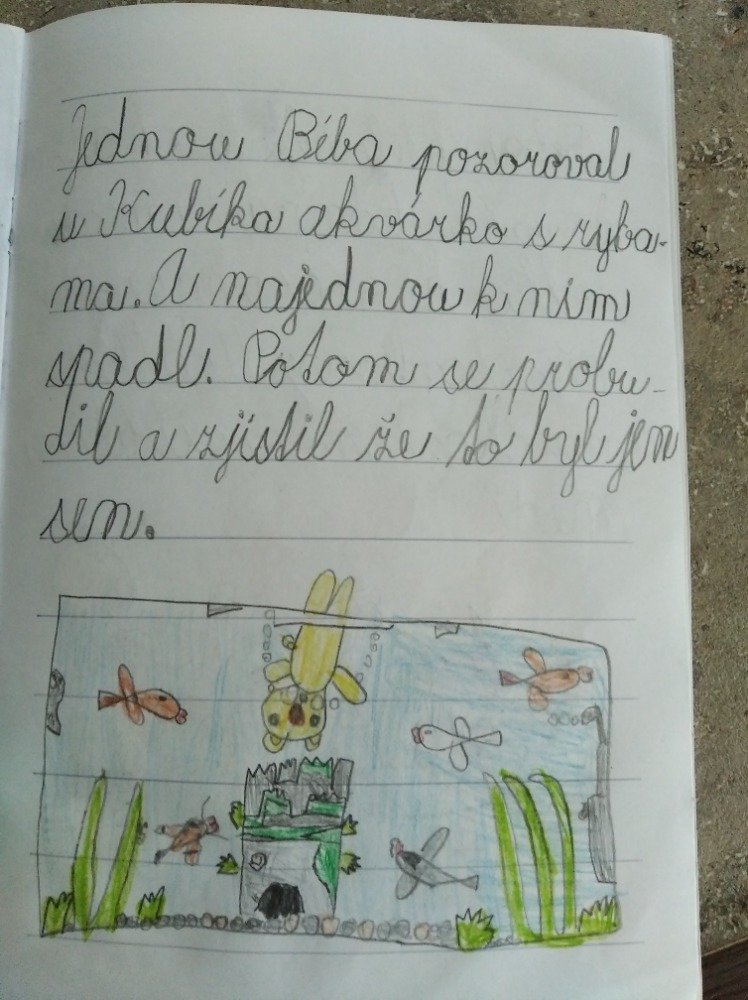 Jednou Bíba pozoroval
u Kubíka akvárko s ryba-
ma. A najednou k nim
spadl. Potom se probu-
dil a zjistil že to byl jen
sen.